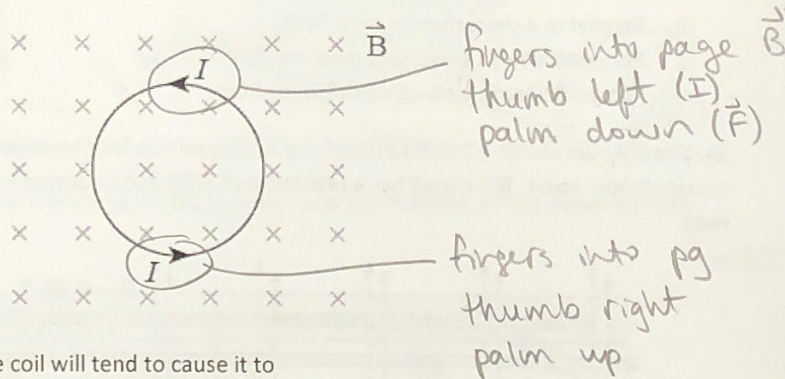 B
I
fingers into page B
thumb left (I)
palm down (F)
I
fingers into pg
thumb right
palm up
e coil will tend to cause it to